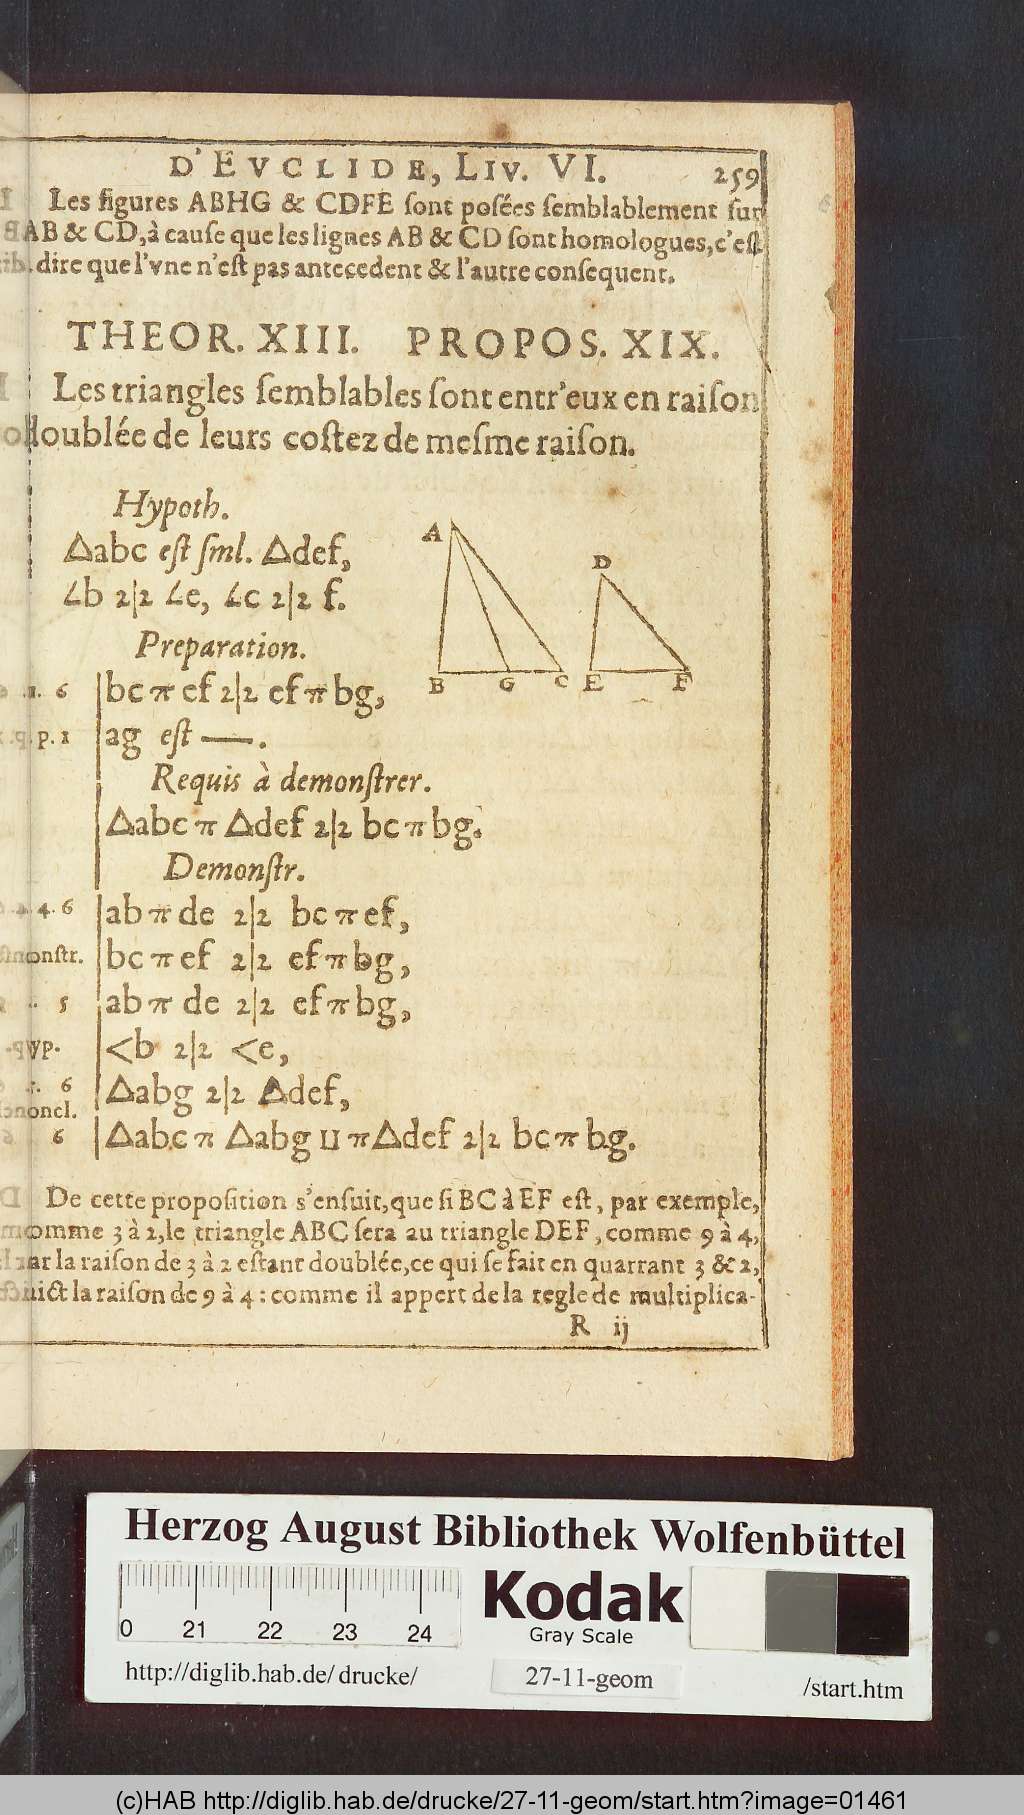 D'EVCLIDE, LIV. VI. 259
Les figures ABHG & CDFE sont posées semblablement sur
AB & CD, à cause que les lignes AB & CD sont homologues, c'est
dire que l'vne n'est pas antecedent & l'autre consequent.
THEOR. XIII. PROPOS. XIX.
Les triangles semblables sont entr'eux en raison
doublée de leurs costez de mesme raison.
Hypoth.
△abc est sml. △def,
∠b 2|2 ∠e, ∠c 2|2 f.
Preparation.
6 bc π ef 2|2 ef π bg,
p. 1 ag est —.
Requis à demonstrer.
△abc π △def 2|2 bc π bg.
Demonstr.
4. 6 ab π de 2|2 bc π ef,
onstr. bc π ef 2|2 ef π bg,
5 ab π de 2|2 ef π bg,
yp. <b 2|2 <e,
6 △abg 2|2 △def,
oncl.
6 △abc π △abg ⊔ π △def 2|2 bc π bg.
A
D
B G C E F
De cette proposition s'ensuit, que si BC à EF est, par exemple,
comme 3 à 2, le triangle ABC sera au triangle DEF, comme 9 à 4,
car la raison de 3 à 2 estant doublée, ce qui se fait en quarrant 3 & 2,
la raison de 9 à 4: comme il appert de la regle de multiplica-
R ij
Herzog August Bibliothek Wolfenbüttel
0 21 22 23 24
Kodak
Gray Scale
http://diglib.hab.de/drucke/ 27-11-geom /start.htm
(c)HAB http://diglib.hab.de/drucke/27-11-geom/start.htm?image=01461